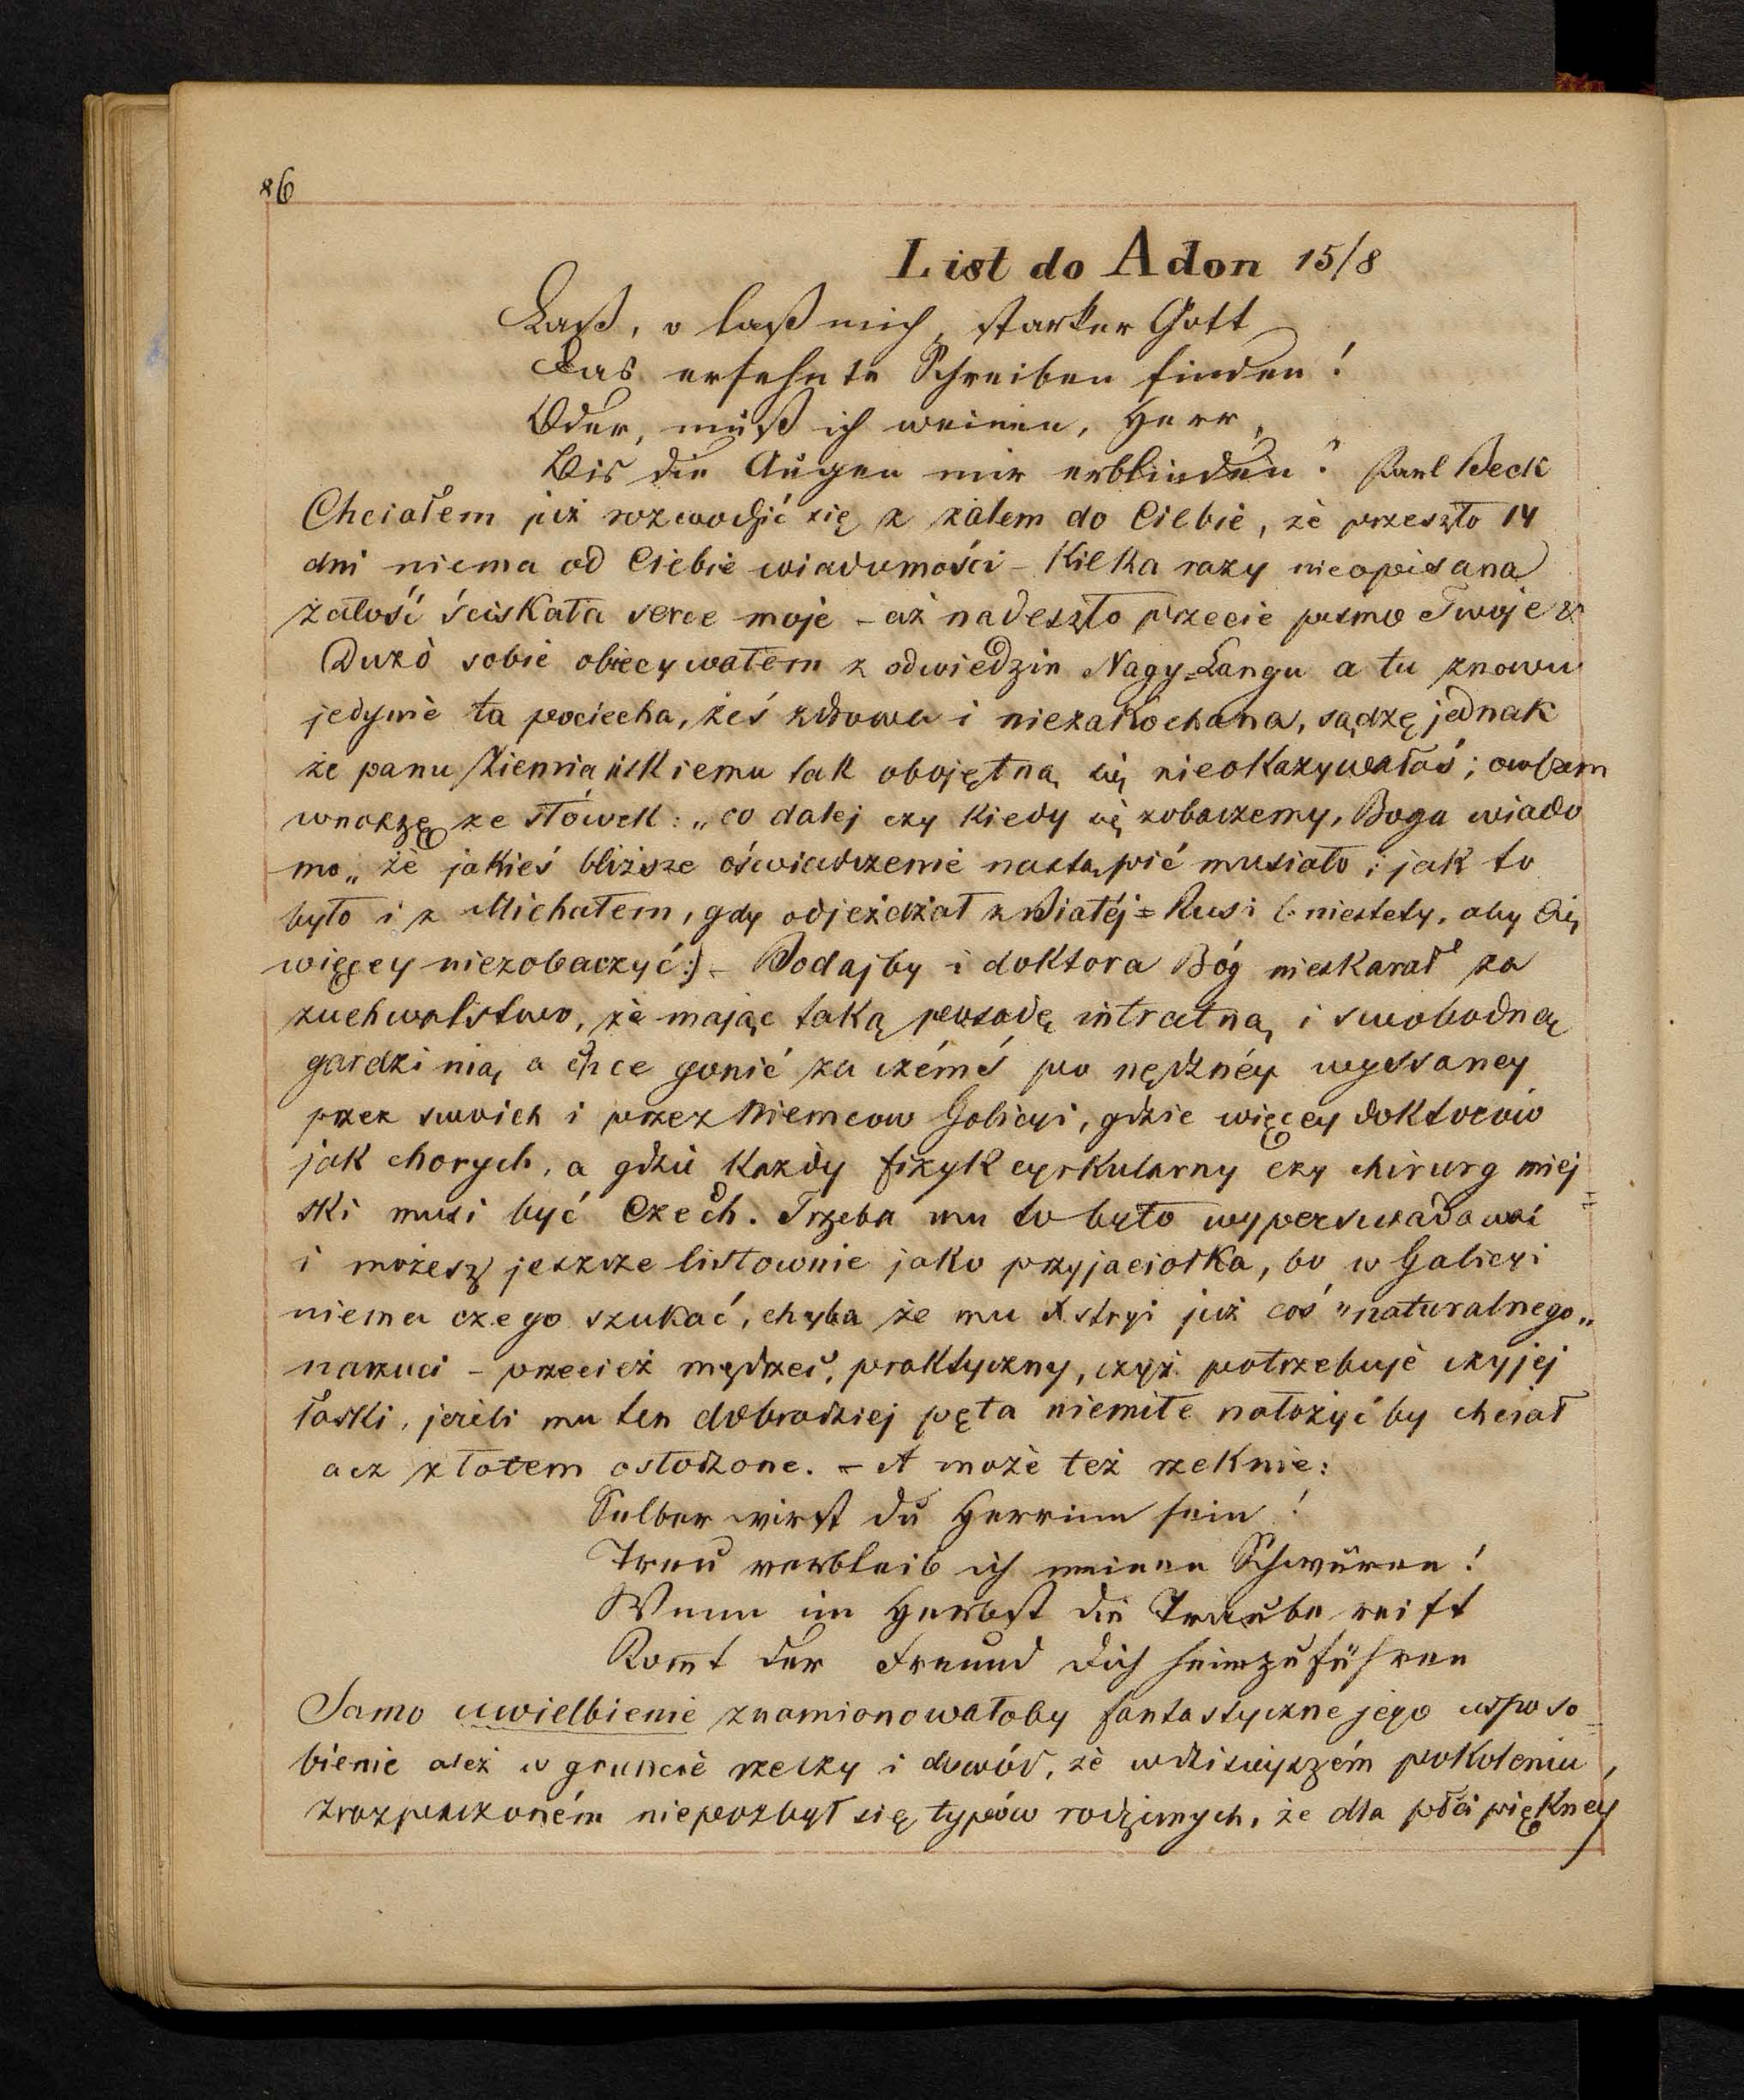 86
List do Adon 15/8
Laß, o laß mich, starker Gott
Das ersehnte Schreiben finden!
Oder, muß ich weinen, Herr,
Bis die Augen mir erblinden? Karl Beck
Chciałem już rozwodzić się z żalem do Ciebie, że przeszło 14
dni niema od Ciebie wiadomości – Kilka razy nieopisana
żałość ściskała serce moje – aż nadeszło przecie pismo Twoje
Dużo sobie obiecywałem z odwiedzin Nagy=Langu a tu znowu
jedynie ta pociecha, żeś zdrowa i niezakochana, sądzę jednak
że panu Ziemiańskiemu tak obojętną się nieokazywałaś; owszem
wnoszę ze słówek: „co dalej czy kiedy się zobaczemy, Bogu wiado
mo„ że jakieś bliższe oświadczenie nastąpić musiało; jak to
było i z Michałem, gdy odjeżdżał z Białéj=Rusi (: niestety, aby Cię
więcey niezobaczyć:) – Bodajby i doktora Bóg nieskarał za
zuchwalstwo, że mając taką posadę intratną i swobodną
gardzi nią, a chce gonić za czémś po nędznéy wyssaney
przez swoich i przez Niemcow Galicyi, gdzie więcey doktorów
jak chorych, a gdzie każdy fizyk cyrkularny czy chirurg miej
ski musi być Czech. Trzeba mu to było wyperswadować
i możesz jeszcze listownie jako przyjaciołka, bo w Galicyi
niema czego szukać, chyba że mu X stryi już coś "naturalnego„
narzuci – przecież mędrzec, praktyczny, czyż potrzebuje czyjej
łaski, jeżeli mu ten dobrodziej pęta niemiłe nałożyć by chciał
acz złotem osłodzone. – A może też rzeknie:
Selber wirst du Herrinn sein!
Treu verbleib ich meinen Schwüren!
Wenn im Herbst die Traube reift
Kom̅t der Freund dich heimzuführen
Samo uwielbienie znamionowałoby fantastyczne jego uspo so
bienie ależ w gruncie rzeczy i dowód, że w dzisiejszém pokoleniu,
zrozpaczoném niepozbył się typów rodzimych, że dla płci piękney